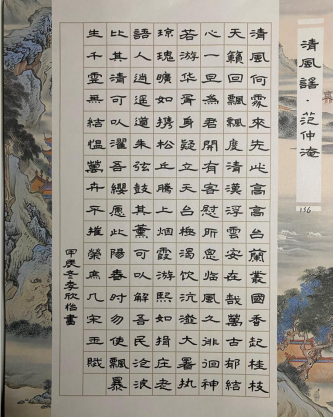 清風謠·范仲淹
156
清風何處來先此高高臺蘭叢國香起桂枝
天籟回飄飄度清漢浮雲安在哉萬古郁結
心一旦為君開有客慰所思臨風久徘徊神
若游華胥身疑立天台極渴飲沆瀣大暑執
琼瑰曠如携松丘騰上烟霞游熙如揖庄老
語人逍遥道朱弦鼓其薫可以解吾民沧浪
比其清可以濯吾纓愿此陽春时勿使飄暴
生千霊無結愠萬卉不摧榮庶几宋玉賦
甲辰冬李欣怡書